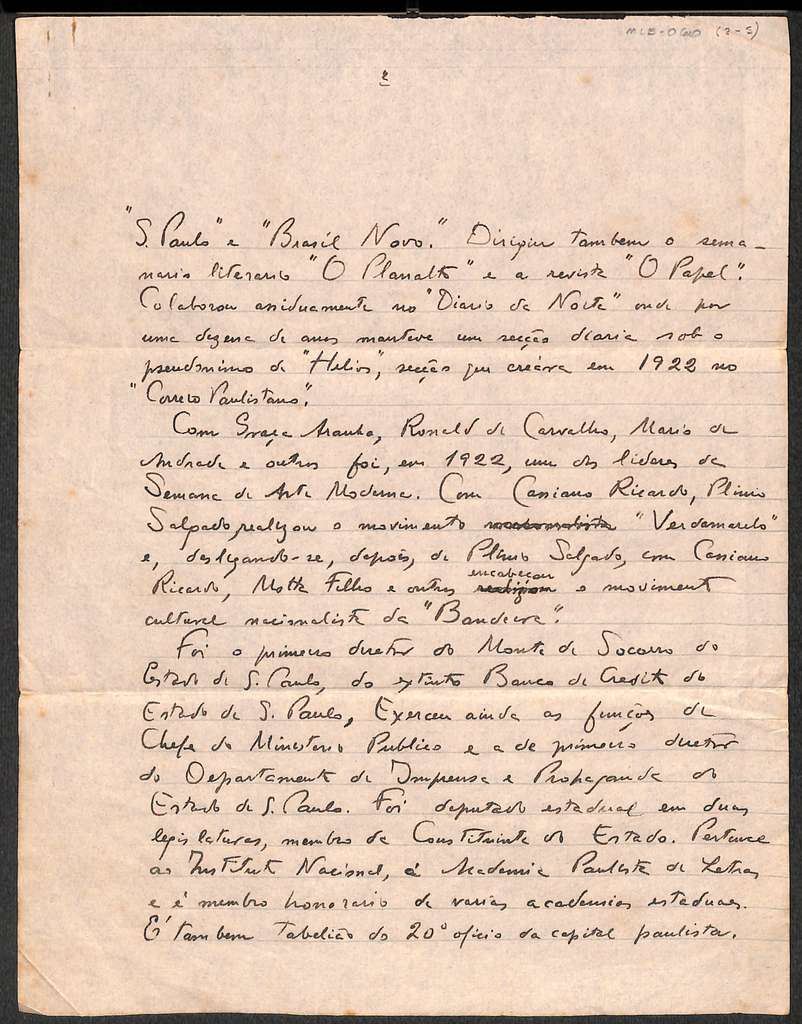 MLB-O (2-5)
2
"S. Paulo" e "Brasil Novo." Dirigiu tambem o sema-
nario literario "O Planalto" e a revista "O Papel".
Colaborou assiduamente no "Diario da Noite" onde por
uma dezena de anos manteve um secção diaria sob o
pseudonimo de "Helios", secção que creára em 1922 no
"Correio Paulistano".
Com Graça Aranha, Ronald de Carvalho, Mario de
Andrade e outros foi, em 1922, um dos lideres da
Semana de Arte Moderna. Com Cassiano Ricardo, Plinio
Salgado, realizou o movimento "Verdamarelo"
e, desligando-se, depois, de Plinio Salgado, com Cassiano
encabeçou
Ricardo, Motta Filho e outros realizou o movimento
cultural nacionalista da "Bandeira".
Foi o primeiro diretor do Monte de Socorro do
Estado de S. Paulo, do extinto Banco de Credito do
Estado de S. Paulo, Exerceu ainda as funções de
Chefe do Ministerio Publico e a de primeiro diretor
do Departamento de Imprensa e Propaganda do
Estado de S. Paulo. Foi deputado estadual em duas
legislaturas, membro da Constituinte do Estado. Pertence
ao Instituto Nacional, á Academia Paulista de Letras
e é membro honorario de varias academias estaduaes.
É tambem tabelião do 20º oficio da capital paulista.